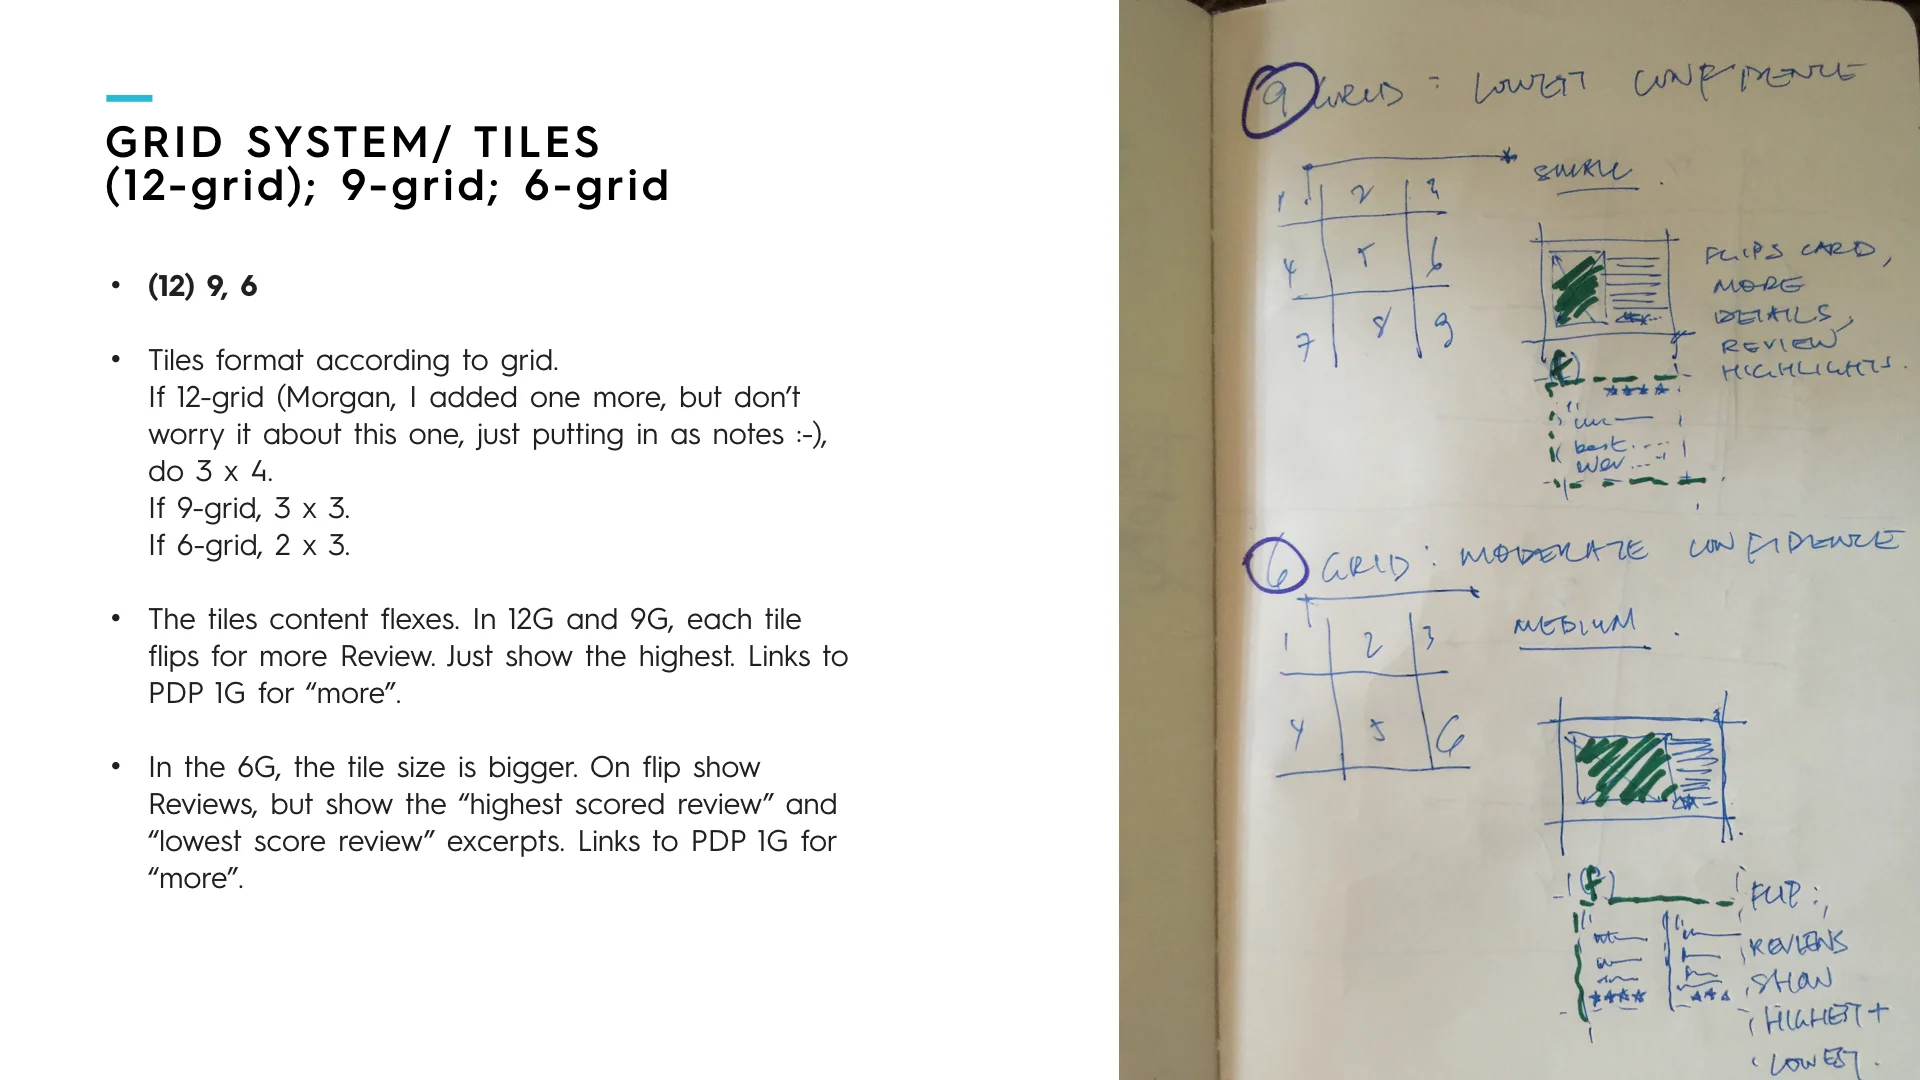 GRID SYSTEM/ TILES
(12-grid); 9-grid; 6-grid
• (12) 9, 6
• Tiles format according to grid.
If 12-grid (Morgan, I added one more, but don’t
worry it about this one, just putting in as notes :-),
do 3 x 4.
If 9-grid, 3 x 3.
If 6-grid, 2 x 3.
• The tiles content flexes. In 12G and 9G, each tile
flips for more Review. Just show the highest. Links to
PDP 1G for “more”.
• In the 6G, the tile size is bigger. On flip show
Reviews, but show the “highest scored review” and
“lowest score review” excerpts. Links to PDP 1G for
“more”.
9 GRID : LOWEST CONFIDENCE
SMALL.
1 2 3
4 5 6
7 8 9
FLIPS CARD,
MORE
DETAILS,
REVIEW
HIGHLIGHTS.
(f)
best...
6 GRID: MODERATE CONFIDENCE
MEDIUM.
1 2 3
4 5 6
(f)
FLIP:
REVIEWS
SHOW
HIGHEST +
LOWEST.